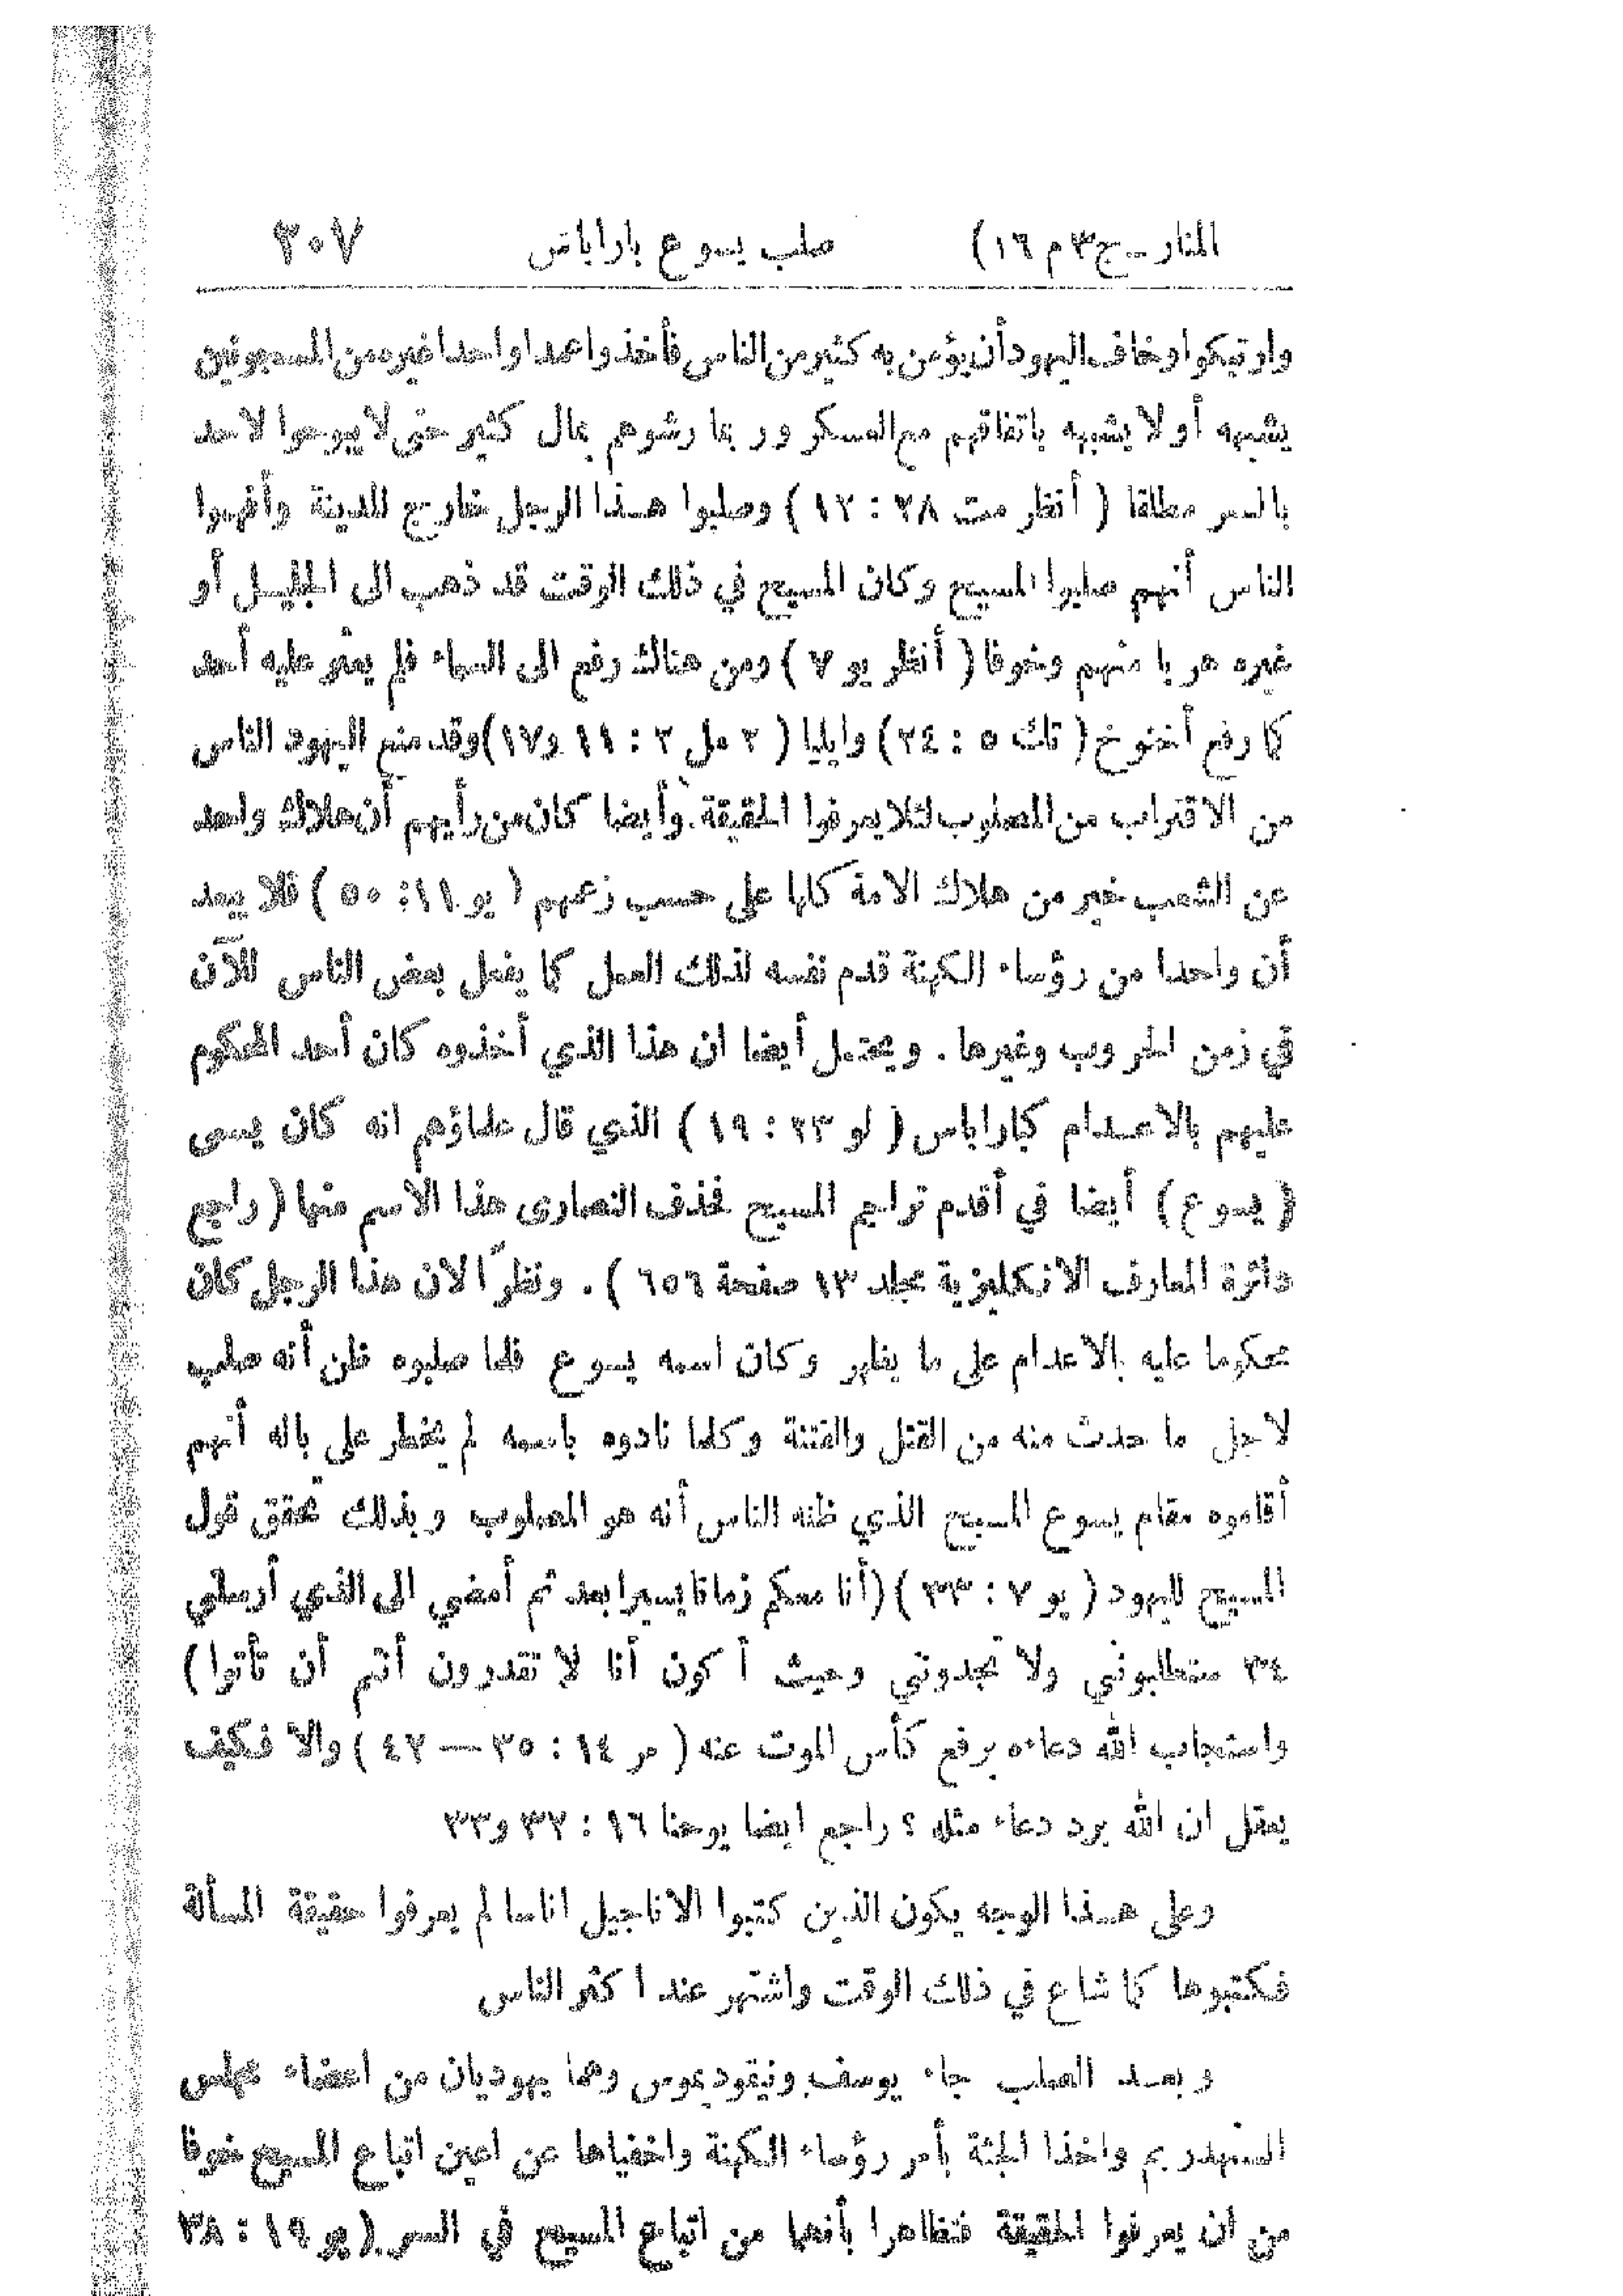 المنار ــ ج٣ م ١٦) صلب يسوع باراباس ٢٠٧
وارتبكوا وخاف اليهود أن يؤمن به كثير من الناس فأخذوا عمدا واحدا غيره من المسجونين
يشبهه أو لا يشبهه باتفاقهم مع العسكر وربما رشوهم بمال كثير حتى لا يبوحوا لاحد
بالسر مطلقا ( أنظر مت ٢٨ : ١٢ ) وصلبوا هذا الرجل خارج المدينة وأفهموا
الناس أنهم صلبوا المسيح وكان المسيح في ذلك الوقت قد ذهب الى الجليل أو
غيره هربا منهم وخوفا ( أنظر يو ٧ ) ومن هناك رفع الى السماء فلم يعثر عليه أحد
كما رفع أخنوخ ( تك ٥ : ٢٤ ) وايليا ( ٢ مل ٢ : ١١ و١٧ ) وقد منع اليهود الناس
من الاقتراب من المصلوب لئلا يعرفوا الحقيقة. وأيضا كان من رأيهم أن هلاك واحد
عن الشعب خير من هلاك الامة كلها على حسب زعمهم ( يو ١١ : ٥٠ ) فلا يبعد
أن واحدا من رؤساء الكهنة قدم نفسه لذلك العمل كما يفعل بعض الناس للآن
في زمن الحروب وغيرها . ويحتمل أيضا ان هذا الذي أخذوه كان أحد المحكوم
عليهم بالاعدام كباراباس ( لو ٢٣ : ١٩ ) الذي قال علماؤهم انه كان يسمى
( يسوع ) أيضا في أقدم تراجم المسيح فحذف النصارى هذا الاسم منها ( راجع
دائرة المعارف الانكليزية مجلد ١٣ صفحة ٦٥٦ ) . ونظرًا لان هذا الرجل كان
محكوما عليه بالاعدام على ما يظهر وكان اسمه يسوع فلما صلبوه ظن أنه صلب
لاجل ما حدث منه من القتل والفتنة وكلما نادوه باسمه لم يخطر على باله أنهم
أقاموه مقام يسوع المسيح الذي ظنه الناس أنه هو المصلوب وبذلك تحقق قول
المسيح لليهود ( يو ٧ : ٣٣ ) (أنا معكم زمانا يسيرا بعد ثم أمضي الى الذي أرسلني
٣٤ ستطلبونني ولا تجدونني وحيث أكون أنا لا تقدرون أنتم أن تأتوا )
واستجاب الله دعاءه برفع كأس الموت عنه ( مر ١٤ : ٣٥ — ٤٢ ) والا فكيف
يعقل ان الله يرد دعاء مثله ؟ راجع ايضا يوحنا ١٦ : ٣٢ و٣٣
وعلى هذا الوجه يكون الذين كتبوا الاناجيل اناسا لم يعرفوا حقيقة المسألة
فكتبوها كما شاع في ذلك الوقت واشتهر عند اكثر الناس
وبعد الصلب جاء يوسف ونيقوديموس وهما يهوديان من اعضاء مجلس
السنهدريم واخذا الجثة بأمر رؤساء الكهنة واخفياها عن اعين اتباع المسيح خوفا
من ان يعرفوا الحقيقة فتظاهرا بأنهما من اتباع المسيح في السر ( يو ١٩ : ٣٨